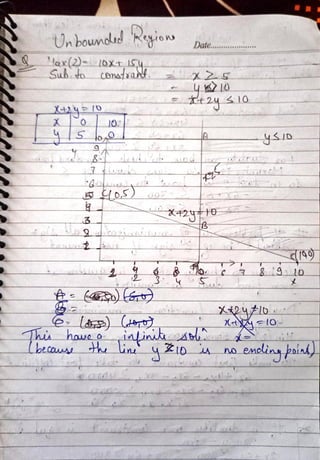 Unbounded Regions
Date
Q Max(Z)= 10x+ 15y
Sub. to constraint = x ≥ 5
- y 10
= x+2y ≤ 10
x+2y=10
x 0 10
y 5 0
A y≤10
y
9
8
7
6
5 (0,5)
4
3
2
x+2y=10
B
(10,0)
6 7 8 9 10
5 x
A = (5,0)
B =
C = (10,0)
x+2y=10
x+2y=10
x=
This have a infinite sol.
(because the line y ≥10 is no ending point)